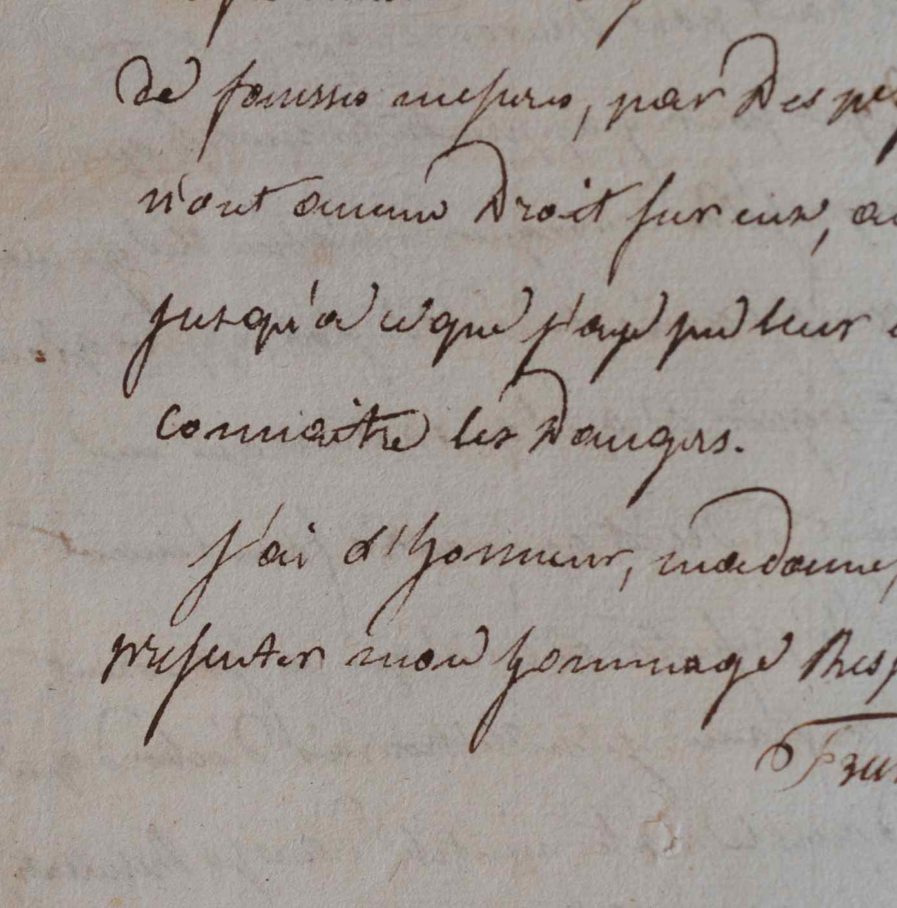 de fausses mesures, par des
n'ont aucun Droit sur eux,
jusqu'a ce que j'aye pu leur
connaitre les Dangers.
J'ai l'honneur, madame,
présenter mon hommage Resp